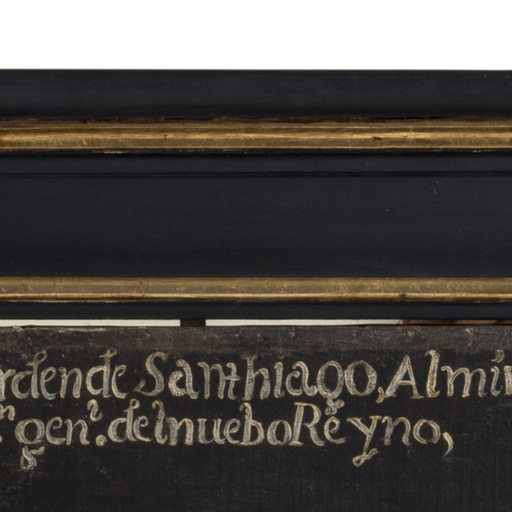 rden de Santhiago, Almir
n gen.l del nuebo Reyno,